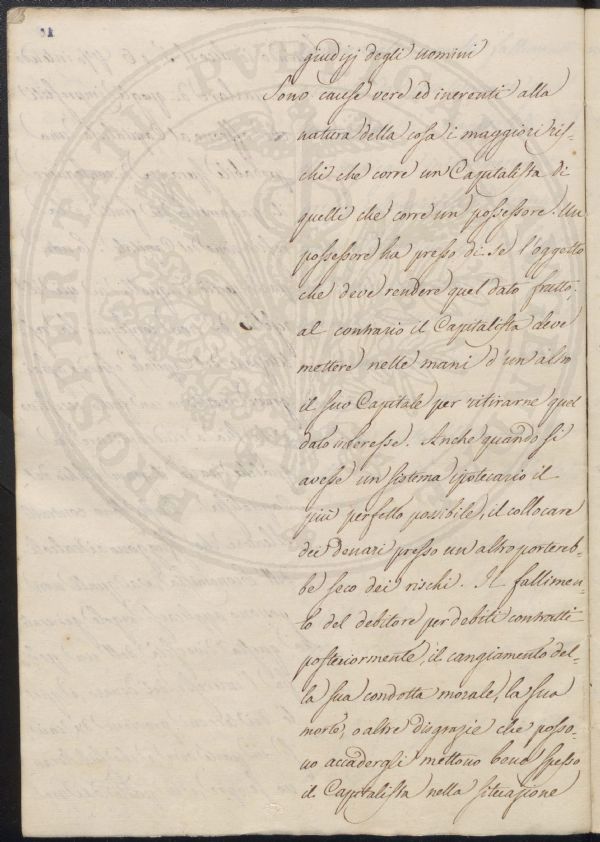 giudizj degli uomini
Sono cause vere ed inerenti alla
natura della cosa i maggiori ris-
chi che corre un Capitalista di
quelli che corre un possessore. Un
possessore ha presso di se l'oggetto
che deve rendere quel dato frutto;
al contrario il Capitalista deve
mettere nelle mani d'un altro
il suo Capitale per ritirarne quel
dato interesse. Anche quando si
avesse un sistema ipotecario il
più perfetto possibile, il collocare
dei denari presso un altro portereb-
be seco dei rischi. Il fallimen-
to del debitore per debiti contratti
posteriormente, il cangiamento del-
la sua condotta morale, la sua
morte, o altre disgrazie che posso-
no accadergli mettono bene spesso
il Capitalista nella situazione